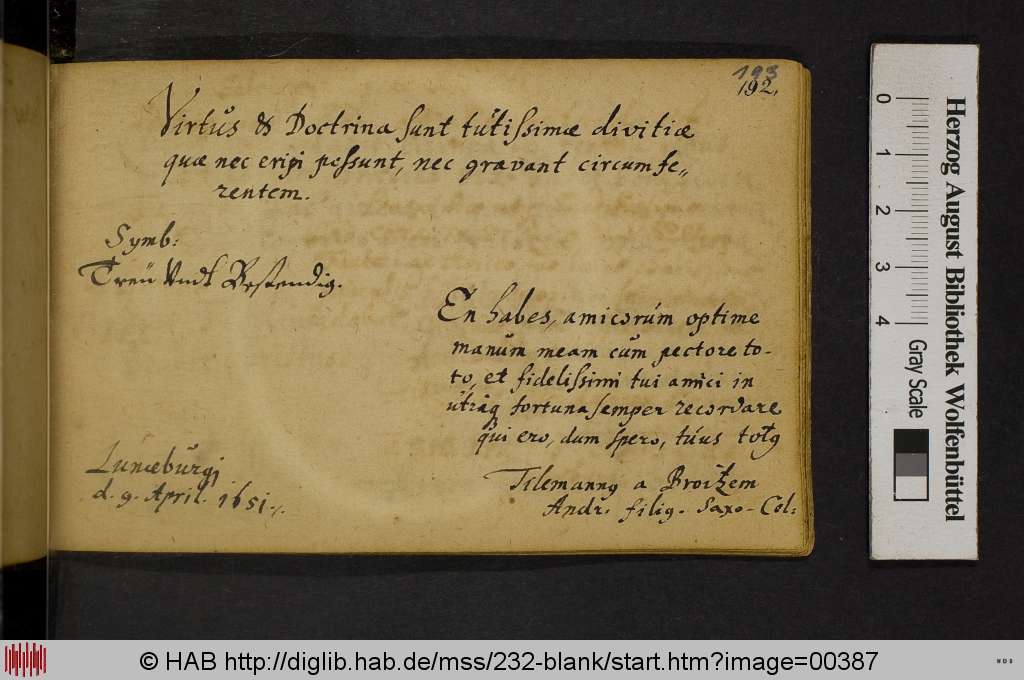 193
192.
Virtus & Doctrina sunt tutissimæ divitiæ
quæ nec eripi possunt, nec gravant circumfe„
rentem.
Symb:
Treü Undt Bestendig.
En habes, amicorúm optime
manum meam cum pectore to-
to, et fidelissimi tui amici in
utraq fortuna semper recordare
qui ero, dum spero, túus totg
Lunæburgi
d. 9. April. 1651.
Tilemanng a Broitzem
Andr. filig. Saxo-Cel:
0 1 2 3 4
Gray Scale
Herzog August Bibliothek Wolfenbüttel
© HAB http://diglib.hab.de/mss/232-blank/start.htm?image=00387